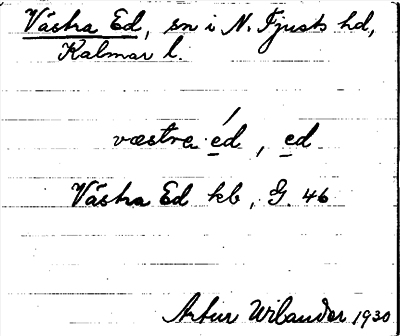 Västra Ed, sn i N. Tjusts hd,
Kalmar l.
væstre éd, ed
Västra Ed kb, G. 46
Artur Wilander 1930